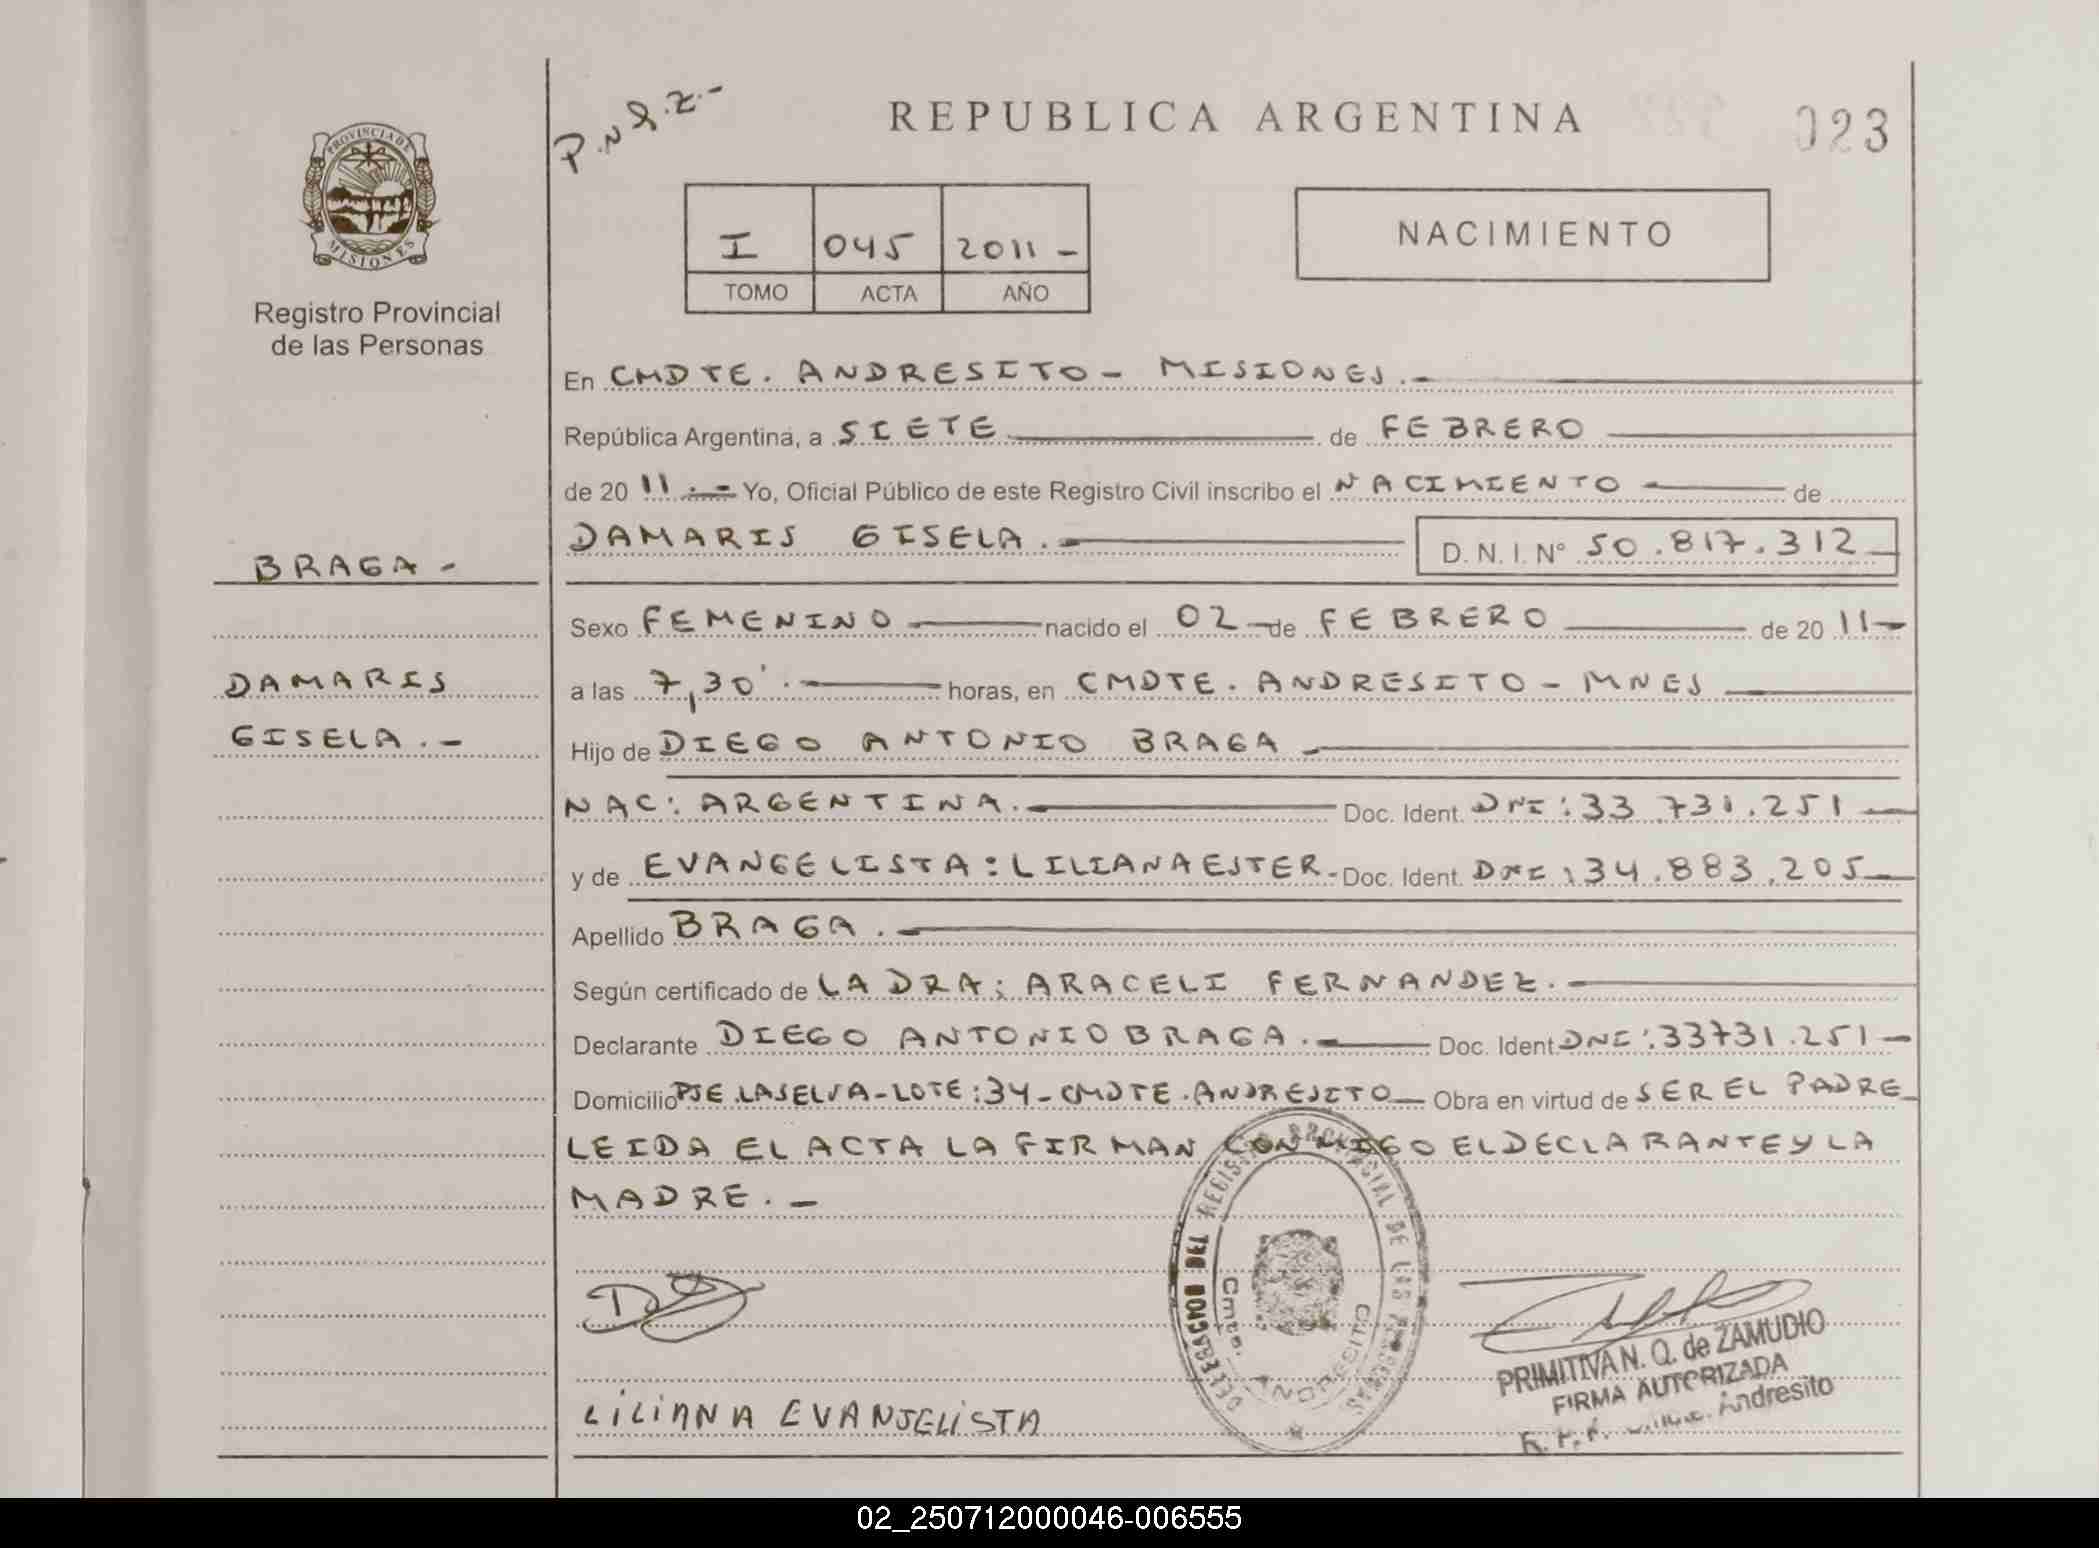 P.N.&.Z.-
REPUBLICA ARGENTINA
023
PROVINCIA DE
MISIONES
I 045 2011-
TOMO ACTA AÑO
NACIMIENTO
Registro Provincial
de las Personas
En CMDTE. ANDRESITO - MISIONES.-
República Argentina, a SIETE de FEBRERO
de 20 11.- Yo, Oficial Público de este Registro Civil inscribo el NACIMIENTO de
DAMARIS GISELA.- D. N. I. N° 50.817.312
BRAGA-
Sexo FEMENINO nacido el 02 de FEBRERO de 20 11-
DAMARIS
a las 7,30' horas, en CMDTE. ANDRESITO - MNES
GISELA.-
Hijo de DIEGO ANTONIO BRAGA
NAC: ARGENTINA. Doc. Ident. DNI: 33.731.251
y de EVANGELISTA: LILIANA ESTER- Doc. Ident. DNI: 34.883.205
Apellido BRAGA.
Según certificado de LA DRA: ARACELI FERNANDEZ.
Declarante DIEGO ANTONIO BRAGA. Doc. Ident DNI: 33731.251-
Domicilio PJE LASELVA-LOTE:34-CMDTE.ANDRESITO Obra en virtud de SER EL PADRE
LEIDA EL ACTA LA FIRMAN CONMIGO EL DECLARANTE Y LA
MADRE.-
REGISTRO PROVINCIAL DE LAS PERSONAS
Cmte. ANDRESITO
PRIMITIVA N. Q. de ZAMUDIO
FIRMA AUTORIZADA
Andresito
LiLiANA EVANJELiSTA
02_250712000046-006555